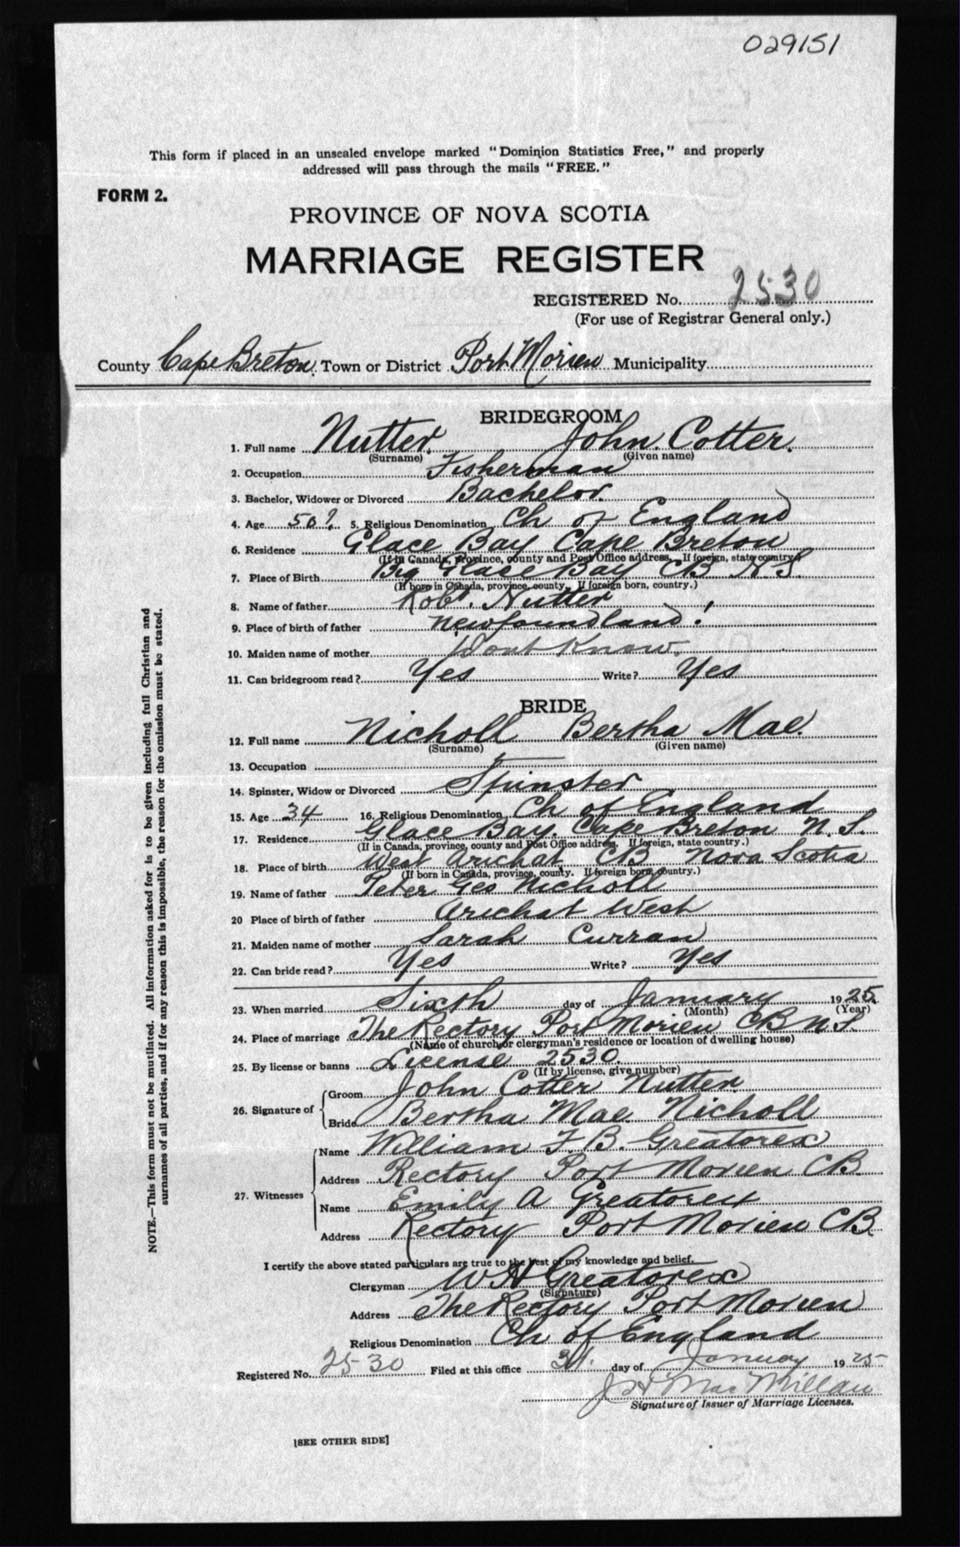 029151
This form if placed in an unsealed envelope marked "Dominion Statistics Free," and properly
addressed will pass through the mails "FREE."
FORM 2.
PROVINCE OF NOVA SCOTIA
MARRIAGE REGISTER
REGISTERED No. 2530
(For use of Registrar General only.)
County Cape Breton. Town or District Port Morien Municipality
BRIDEGROOM
1. Full name Nutter. John. Cotter.
(Surname) (Given name)
2. Occupation Fisherman
3. Bachelor, Widower or Divorced Bachelor.
4. Age 50?. 5. Religious Denomination Ch of England
6. Residence Glace Bay Cape Breton
(If in Canada, province, county and Post Office address. If foreign, state country.)
7. Place of Birth Big Glace Bay CB N.S.
(If born in Canada, province, county. If foreign born, country.)
8. Name of father Robt. Nutter
9. Place of birth of father Newfoundland!
10. Maiden name of mother Dont Know.
11. Can bridegroom read? Yes Write? Yes
BRIDE
12. Full name Nicholl Bertha Mae.
(Surname) (Given name)
13. Occupation
14. Spinster, Widow or Divorced Spinster
15. Age 34 16. Religious Denomination Ch of England
17. Residence Glace Bay Cape Breton N.S.
(If in Canada, province, county and Post Office address. If foreign, state country.)
18. Place of birth West Arichat CB Nova Scotia
(If born in Canada, province, county. If foreign born, country.)
19. Name of father Peter Geo Nicholl
20 Place of birth of father Arichat West
21. Maiden name of mother Sarah Curran
22. Can bride read? Yes Write? Yes
23. When married Sixth day of January 1925
(Month) (Year)
24. Place of marriage The Rectory Port Morien CB N.S.
(Name of church, or clergyman's residence or location of dwelling house)
25. By license or banns License 2530.
(If by license, give number)
26. Signature of Groom John Cotter Nutter
Bride Bertha Mae Nicholl
27. Witnesses Name William F. B. Greatorex
Address Rectory Port Morien CB.
Name Emily A Greatorex
Address Rectory Port Morien CB
I certify the above stated particulars are true to the best of my knowledge and belief.
Clergyman W H Greatorex
(Signature)
Address The Rectory Port Morien
Religious Denomination Ch of England
Registered No. 2530 Filed at this office day of January 1925
J H MacMillan
Signature of Issuer of Marriage Licenses.
[SEE OTHER SIDE]
NOTE.—This form must not be mutilated. All information asked for is to be given including full Christian and
surnames of all parties, and if for any reason this is impossible, the reason for the omission must be stated.